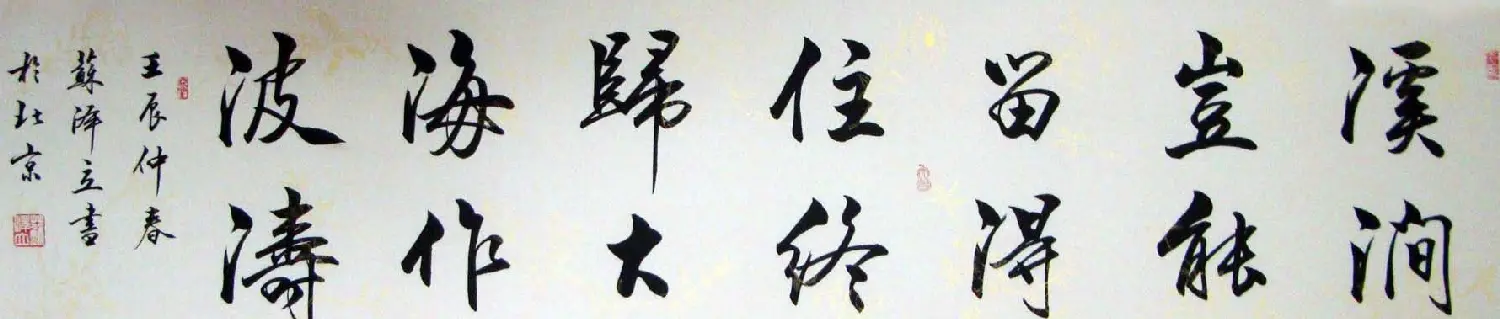 溪澗
豈能
留得
住終
歸大
海作
波濤
壬辰仲春
蘇澤立書
於北京